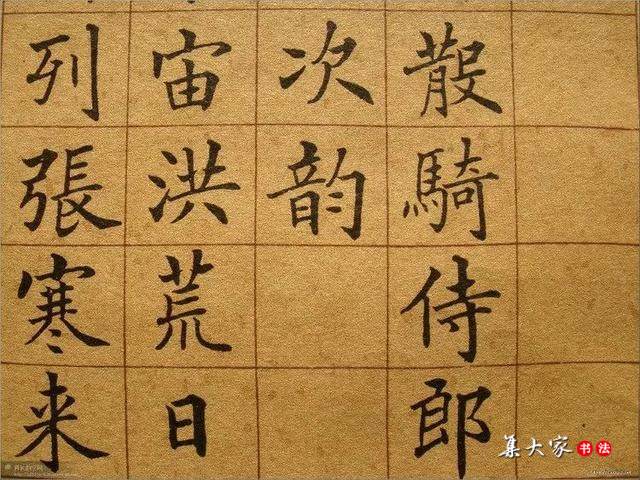 散騎侍郎
次韵
宙洪荒日
列張寒来
集大家书法